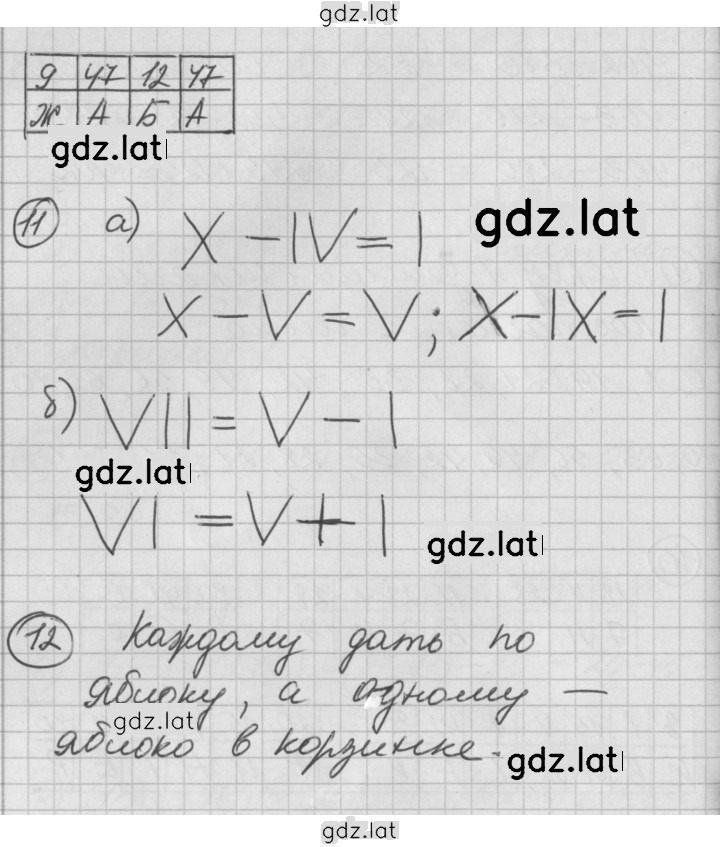 gdz.lat
9 47 12 47
Ж А Б А
gdz.lat
11 а) X - IV = I
gdz.lat
X - V = V; X - IX = I
б) VII = V - I
gdz.lat
VI = V + I
gdz.lat
12 Каждому дать по
яблоку, а одному —
gdz.lat
яблоко в корзинке.
gdz.lat
gdz.lat